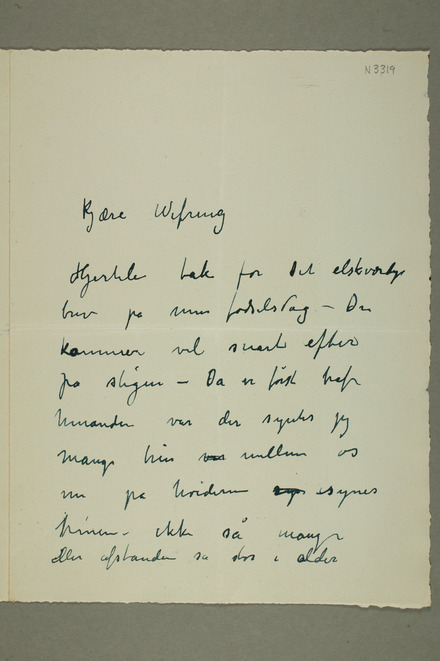 N 3319
Kjære Wefring
Hjertelig tak for det elskværdige
brev på min fødselsdag – Du
kommer vel snart efter
på stigen – Da vi først traf
hinanden var der syntes jeg
mange trin mellem os
nu på høiden synes
trinene ikke så mange
Eller afstanden så stor i alder